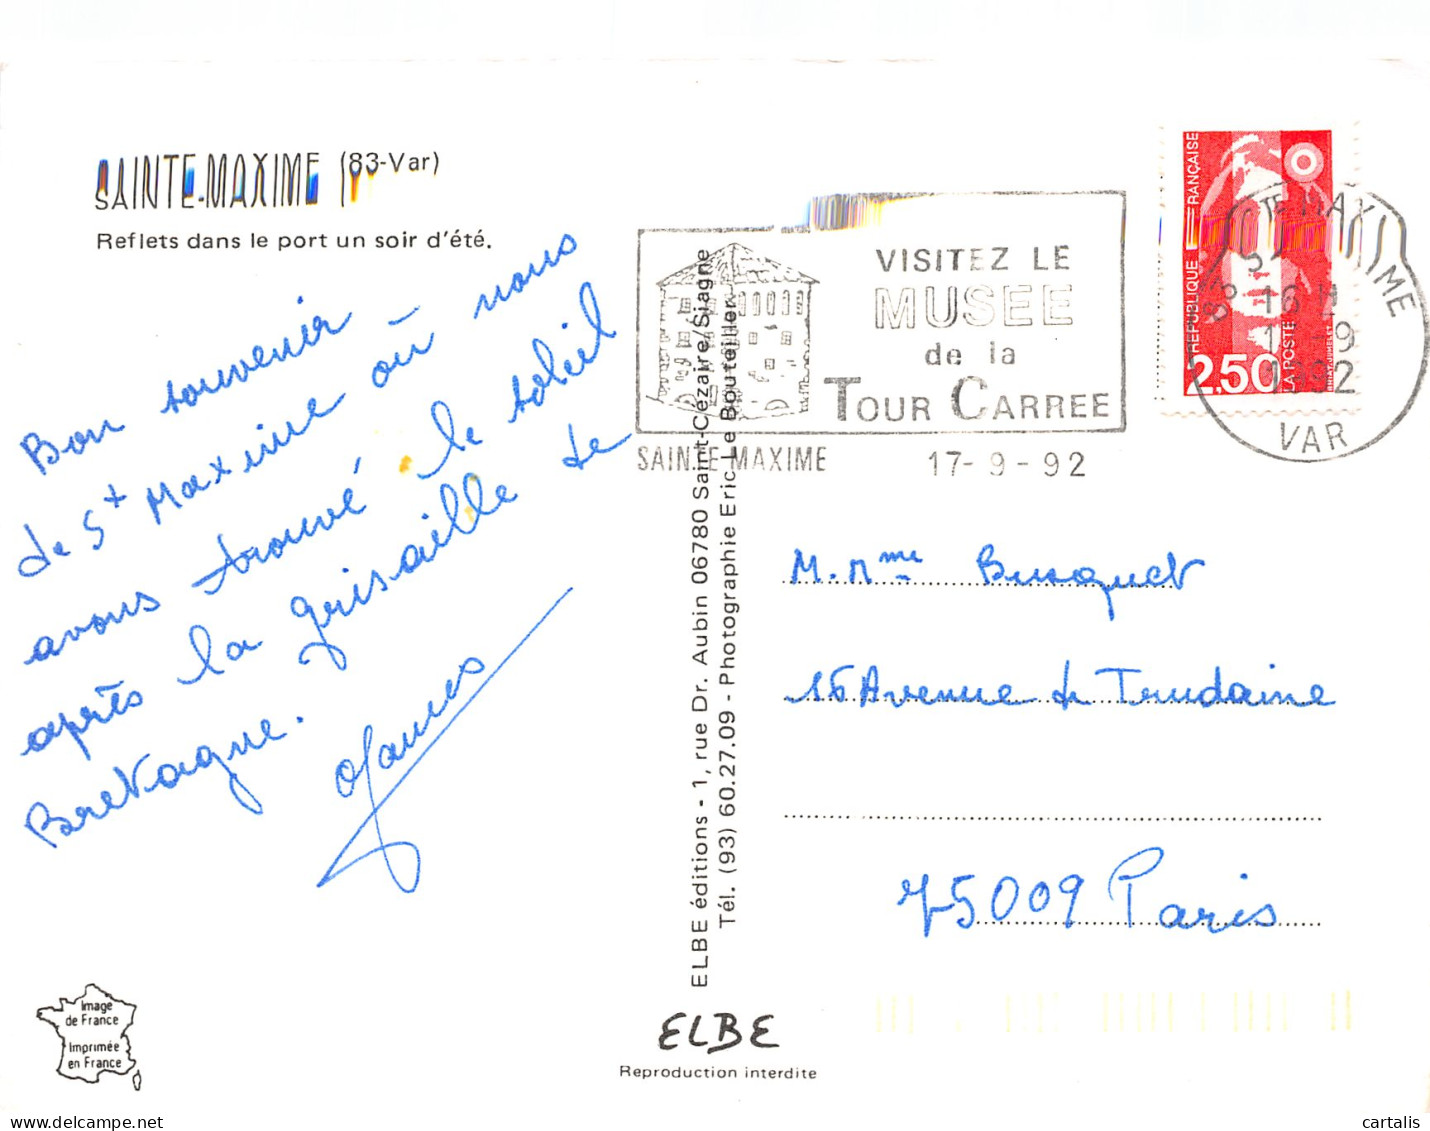 SAINTE-MAXIME (83-Var)
Reflets dans le port un soir d'été.
Bon souvenir
de St Maxime où nous
avons trouvé le soleil
après la grisaille de
Bretagne.
Image
de France
Imprimée
en France
ELBE éditions - 1, rue Dr. Aubin 06780 Saint-Cézaire/Siagne
Tél. (93) 60.27.09 - Photographie Eric Le Bouteiller
ELBE
Reproduction interdite
VISITEZ LE
MUSEE
de la
TOUR CARREE
SAINTE MAXIME 17-9-92
RÉPUBLIQUE FRANÇAISE
2.50
LA POSTE
83 STE MAXIME
VAR
M. Mme Busquet
16 Avenue de Trudaine
75009 Paris
cartalis